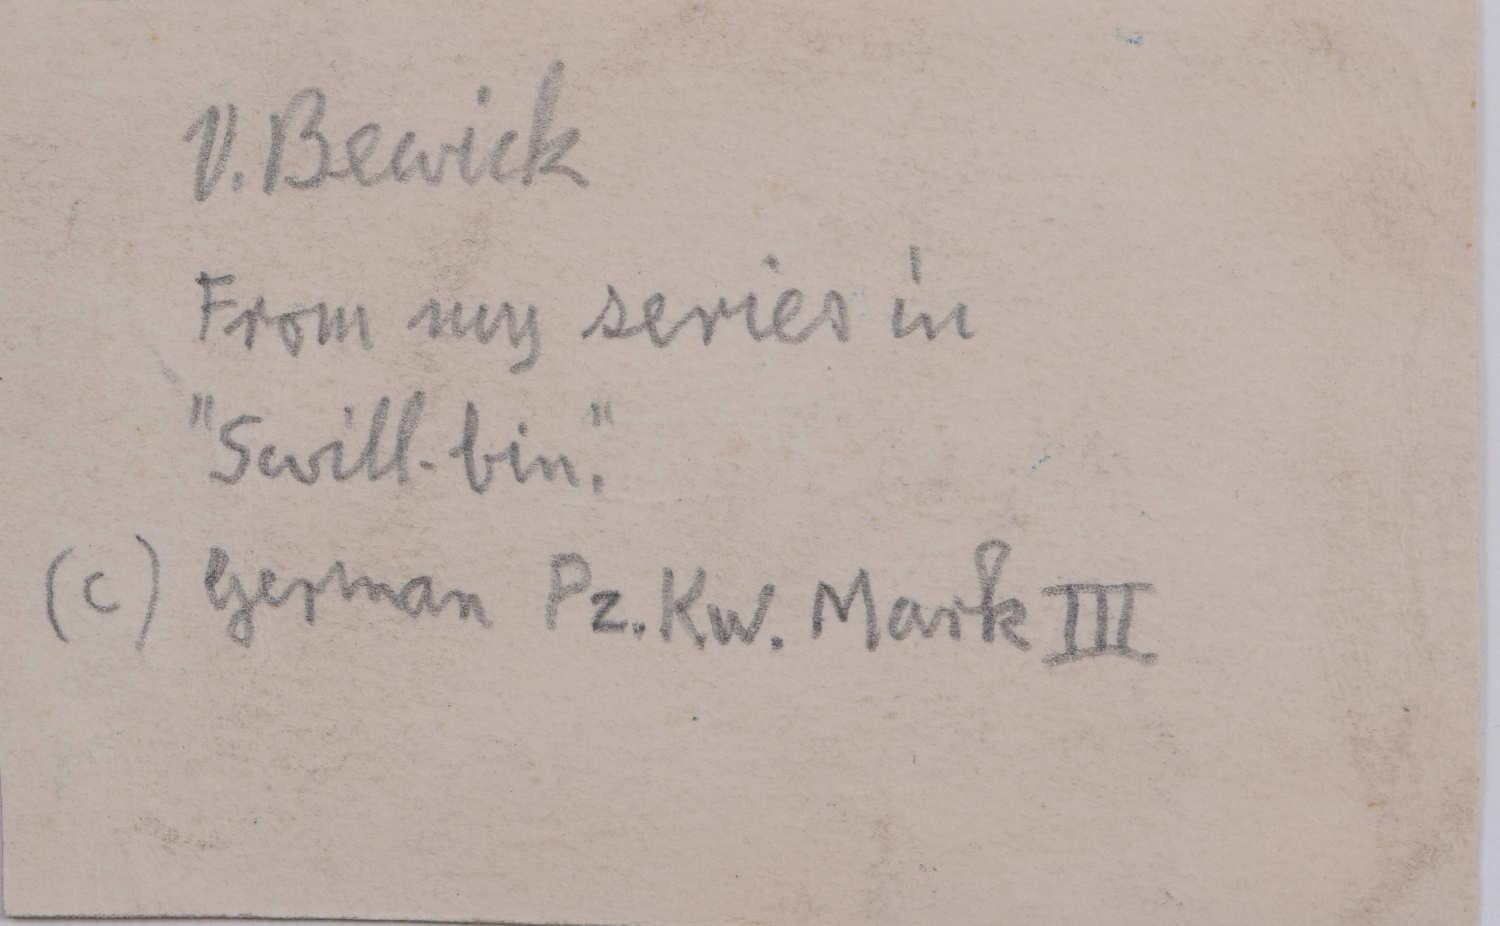 V. Bewick
From my series in
"Swill-bin."
(c) German Pz. Kw. Mark III